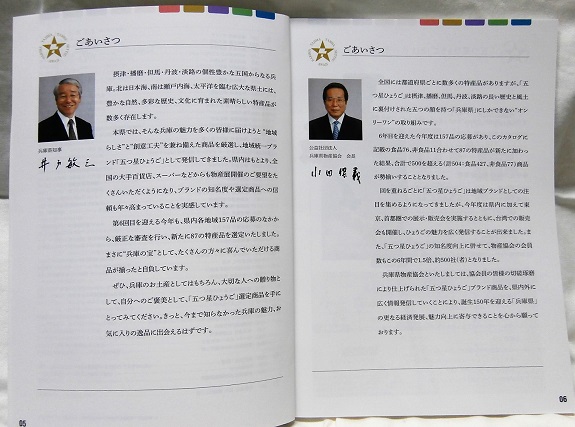 ごあいさつ
兵庫県知事
井戸敏三
摂津・播磨・但馬・丹波・淡路の個性豊かな五国からなる兵
庫。北は日本海、南は瀬戸内海、太平洋を臨む広大な県土には、
豊かな自然、多彩な歴史、文化に育まれた素晴らしい特産品が
数多く存在します。
本県では、そんな兵庫の魅力を多くの皆様に届けようと“地域
らしさ”と“創意工夫”を兼ね備えた商品を厳選し、地域統一ブラ
ンド「五つ星ひょうご」として発信してきました。県内はもとより、全
国の大手百貨店、スーパーなどからも物産展開催のご要望をた
くさんいただくようになり、ブランドの知名度や選定商品への信
頼も年々高まっていることを実感しています。
第6回目を迎える今年も、県内各地域157品の応募のなかか
ら、厳正な審査を行い、新たに87の特産品を選定いたしました。
まさに“兵庫の宝”として、たくさんの方々に喜んでいただける商
品が揃ったと自負しています。
ぜひ、兵庫のお土産としてはもちろん、大切な人への贈り物と
して、自分へのご褒美として、「五つ星ひょうご」選定商品を手に
とってみてください。きっと、今まで知らなかった兵庫の魅力、お
気に入りの逸品に出会えるはずです。
05
ごあいさつ
公益社団法人
兵庫県物産協会 会長
全国には都道府県ごとに数多くの特産品がありますが、「五
つ星ひょうご」は摂津、播磨、但馬、丹波、淡路の長い歴史と風土
に裏付けされた五つの顔を持つ「兵庫県」にしかできない“オン
リーワン”の取り組みです。
6年目を迎えた今年度は157品の応募があり、このカタログに
記載の食品76、非食品11合わせて87の特産品が新たに加わっ
た結果、合計で500を超える(計504:食品427、非食品77)商品
が勢揃いすることとなりました。
回を重ねるごとに「五つ星ひょうご」は地域ブランドとしての注
目を集めるようになってきましたが、今年度は県内に加えて東
京、首都圏での展示・販売会を実施するともに、台湾での販売
会も開催し、ひょうごの魅力を広く発信することが出来ました。ま
た、「五つ星ひょうご」の知名度向上に併せて、物産協会の会員
数もこの6年間で1.5倍、約500社(者)となりました。
兵庫県物産協会といたしましては、協会員の皆様の切磋琢磨
により仕上げられた「五つ星ひょうご」ブランド商品を、県内外に
広く情報発信していくことにより、誕生150年を迎える「兵庫県」
の更なる経済発展、魅力向上に寄与できることを心から願って
おります。
06